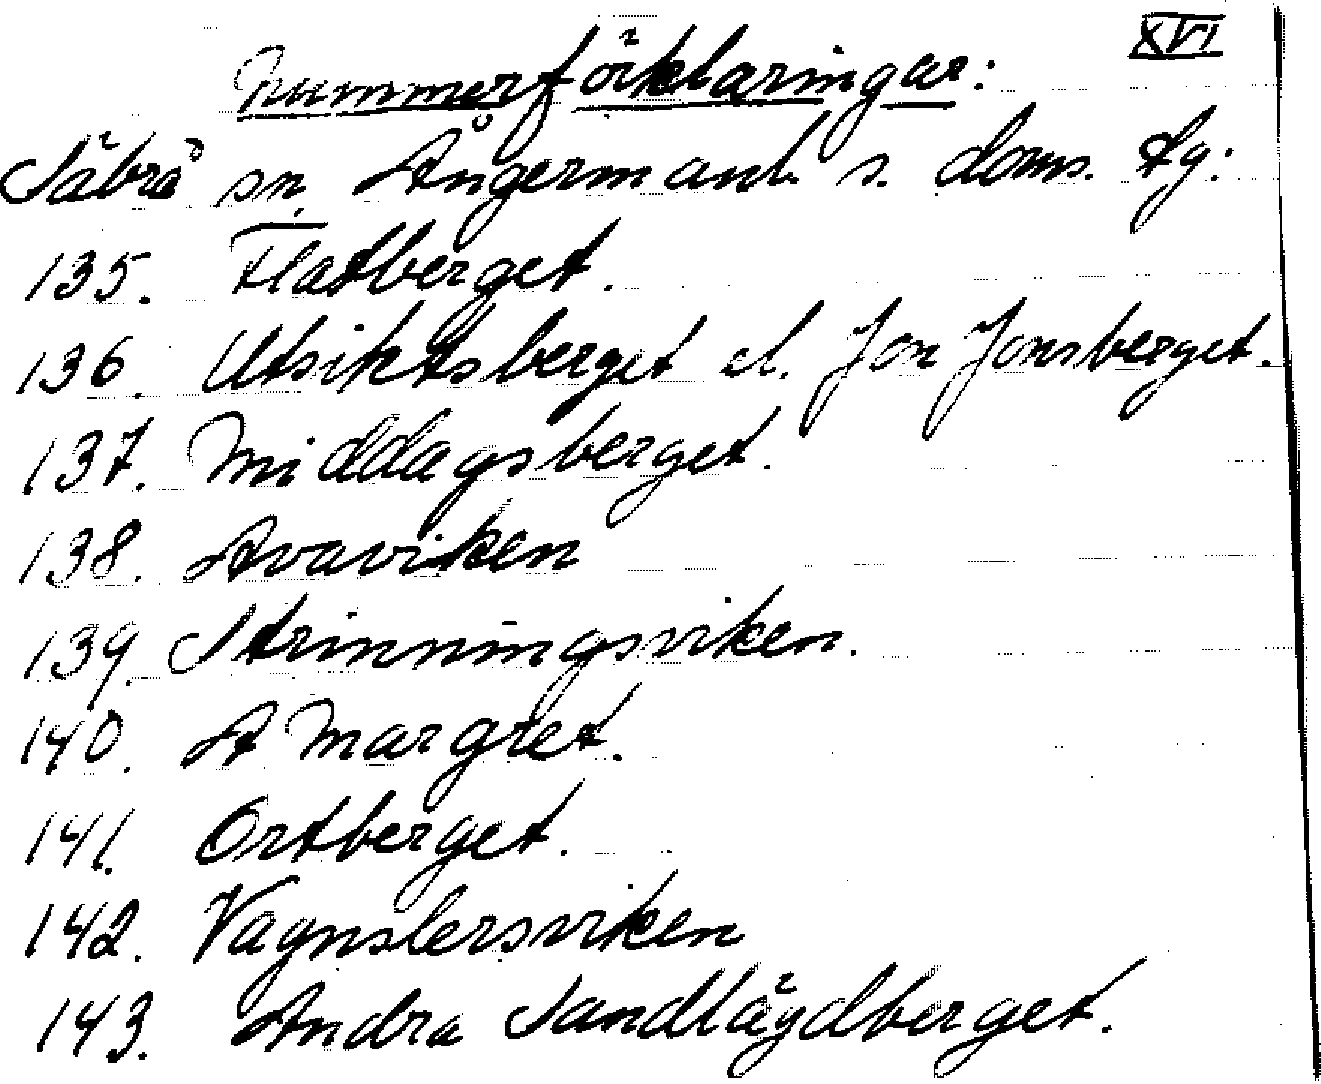 XVI
Nummerförklaringar:
Säbrå sn. Ångermanl. s. doms. Ag:
135. Flatberget.
136. Utsiktsberget el. Jon Jonsberget.
137. Middagsberget.
138. Avaviken
139. Strinningsviken.
140. A Margret.
141. Ortberget.
142. Vagnslersviken
143. Andra Sandlägdberget.